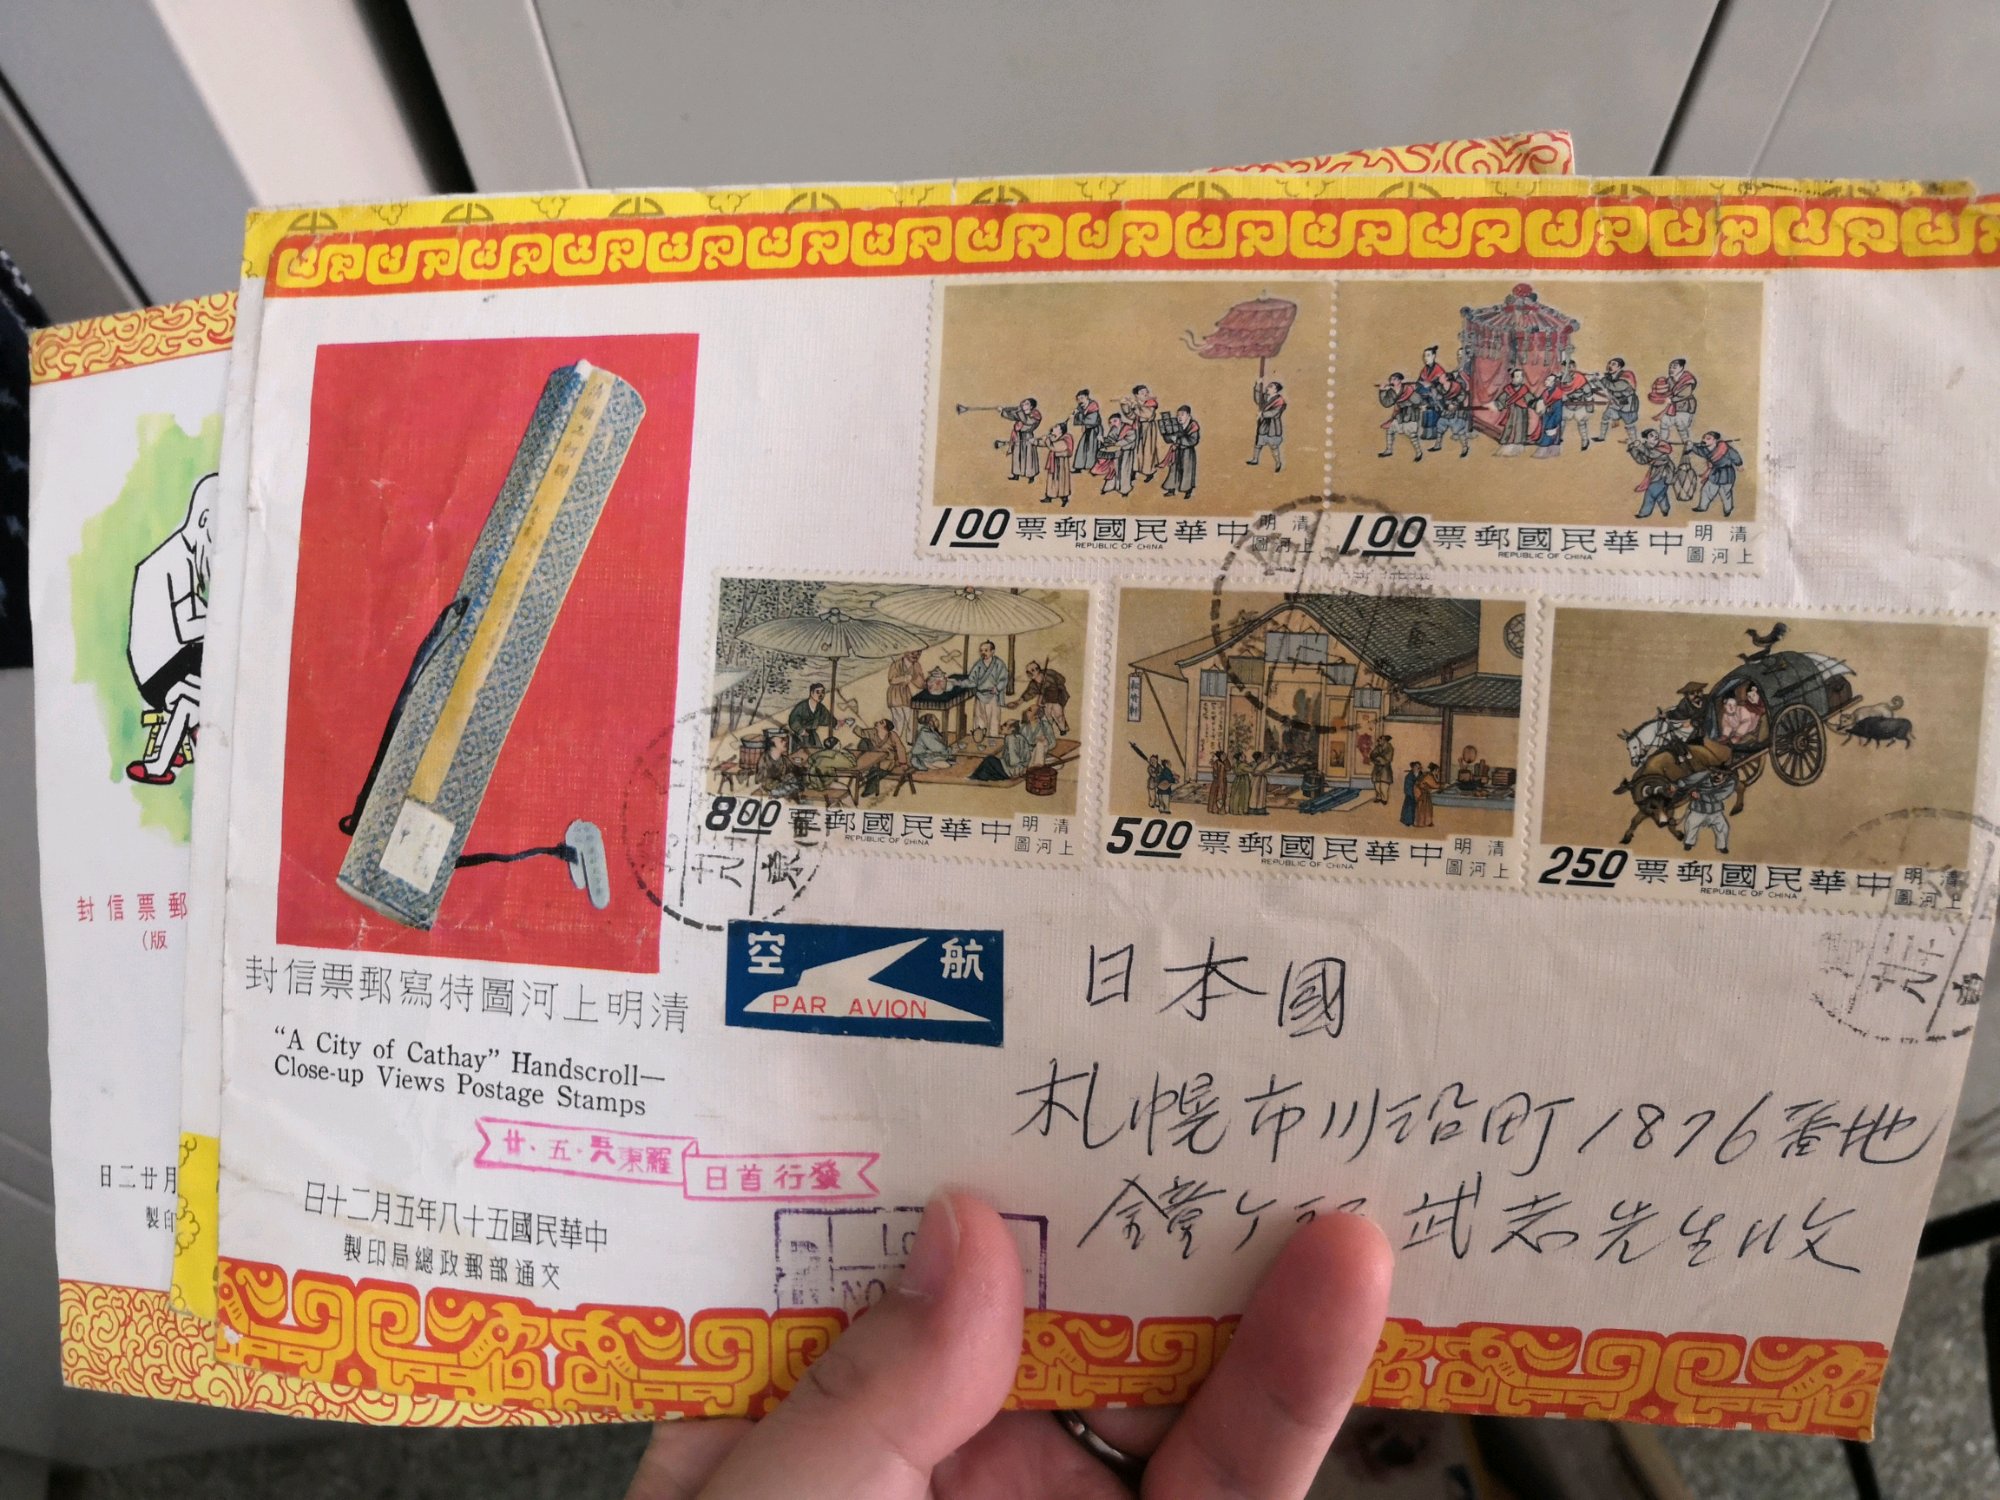 1.00 票郵國民華中 明清
REPUBLIC OF CHINA 圖河上
1.00 票郵國民華中 明清
REPUBLIC OF CHINA 圖河上
8.00 票郵國民華中 明清
REPUBLIC OF CHINA 圖河上
5.00 票郵國民華中 明清
REPUBLIC OF CHINA 圖河上
2.50 票郵國民華中 明清
REPUBLIC OF CHINA 圖河上
封信票郵寫特圖河上明清
"A City of Cathay" Handscroll—
Close-up Views Postage Stamps
空航
PAR AVION
日本國
札幌市川沿町1876番地
武志先生收
廿·五·東羅
日首行發
日十二月五年八十五國民華中
製印局總政郵部通交
NO
封信票郵
(版
日二廿月
製印